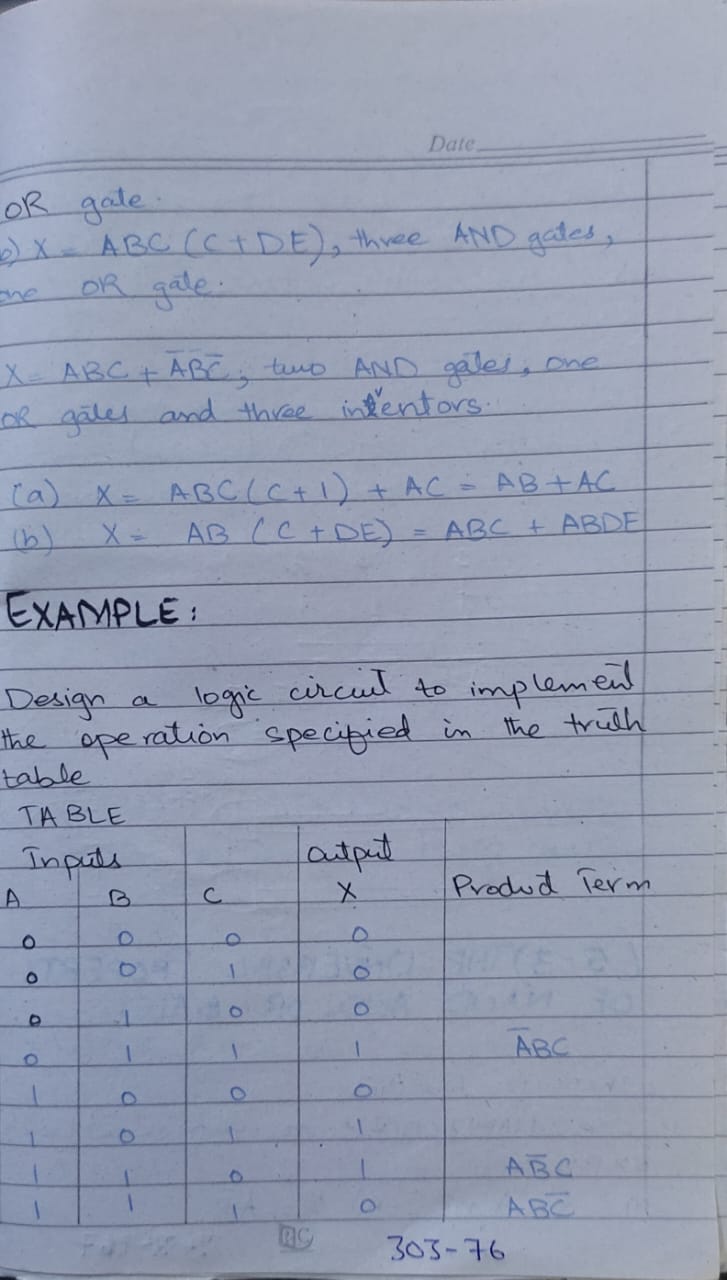 Date
OR gate.
b) X = ABC (C + DE), three AND gates,
one OR gate.
X = ABC + A̅BC̅, two AND gates, one
OR gates and three inventors.
(a) X = ABC(C + 1) + AC = AB + AC
(b) X = AB (C + DE) = ABC + ABDE
EXAMPLE:
Design a logic circuit to implement
the operation specified in the truth
table
TABLE
Inputs Output
A B C X Product Term
0 0 0 0
0 0 1 0
0 1 0 0
0 1 1 1 A̅BC
1 0 0 0
1 0 1 1
1 1 0 1 AB̅C
1 1 1 0 ABC̅
303-76